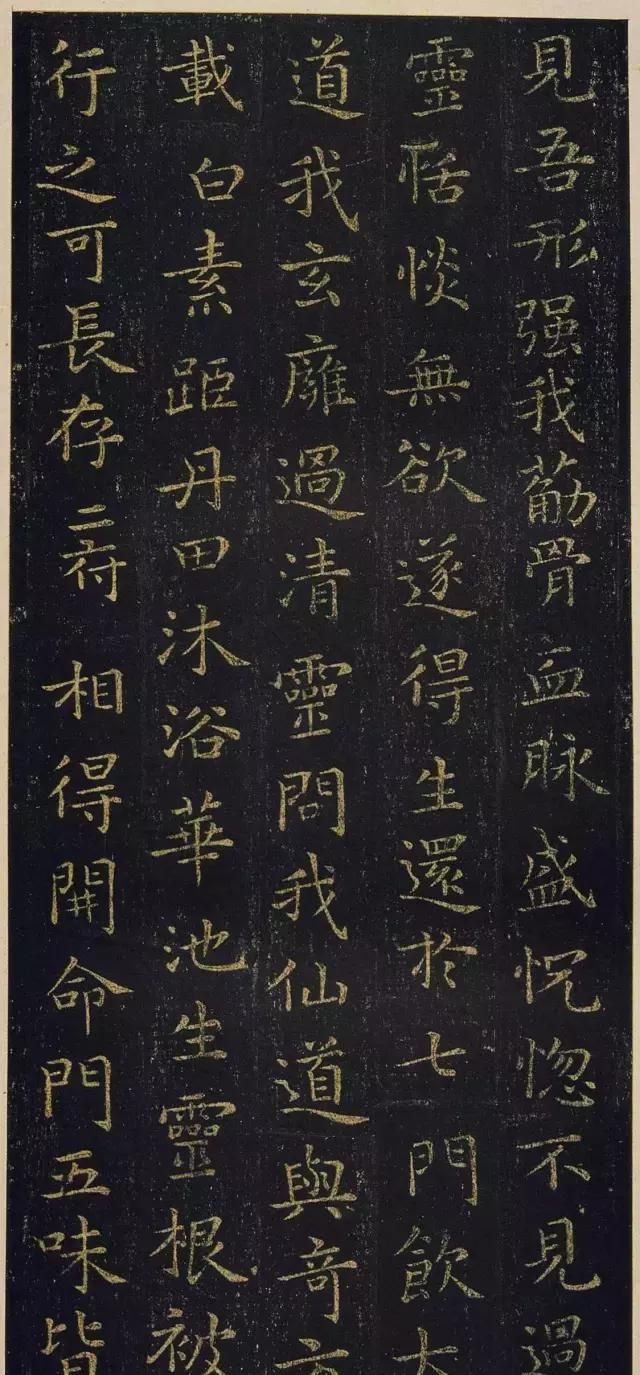 見吾形强我筋骨血脉盛怳惚不見過
靈恬惔無欲遂得生還於七門飲大
道我玄廱過清靈問我仙道與奇方
載白素距丹田沐浴華池生靈根被
行之可長存二府相得開命門五味皆